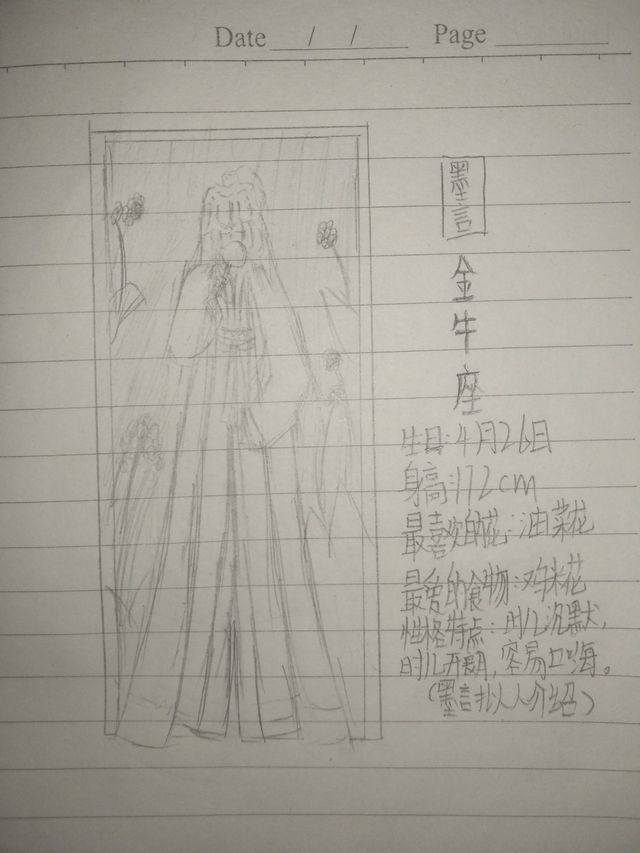 Date / / Page
墨言
金牛座
生日:4月26日
身高:172cm
最喜欢的花:油菜花
最爱的食物:鸡米花
性格特点:时儿沉默,
时儿开朗,容易口嗨。
(墨言拟人介绍)